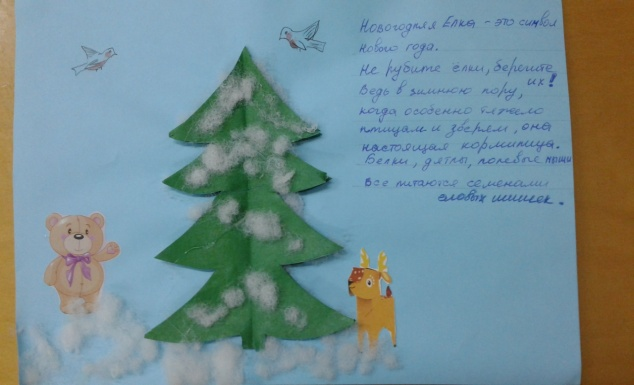 Новогодняя Ёлка - это символ
нового года.
Не рубите ёлки, берегите
их!
Ведь в зимнюю пору,
когда особенно тяжело
птицам и зверям, она
настоящая кормилица.
Белки, дятлы, полевые мыши
все питаются семенами
еловых шишек.